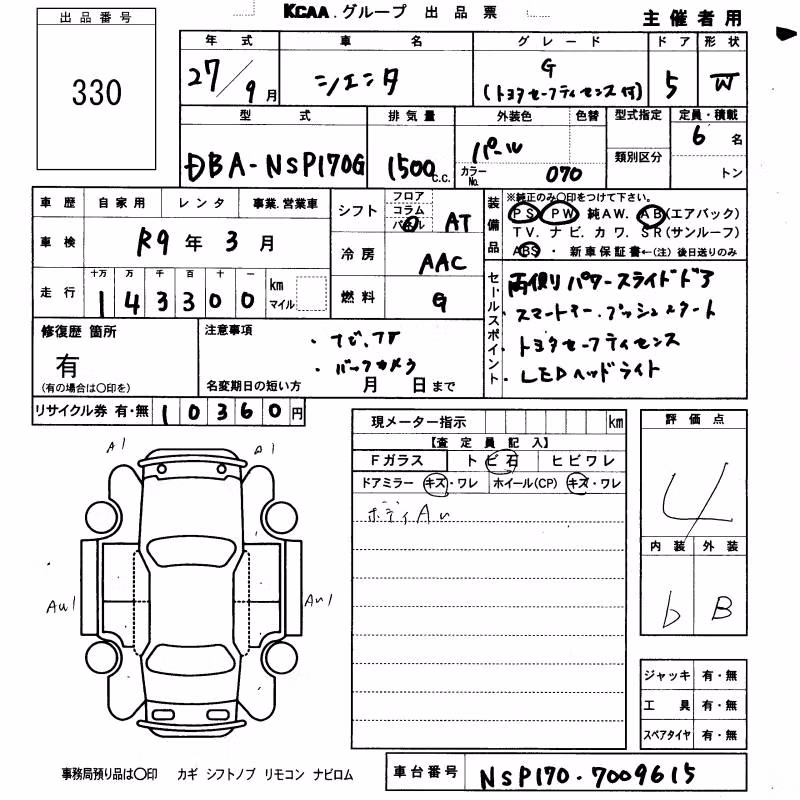 出品番号
330
KCAA.グループ 出品票
主催者用
年式 車名 グレード ドア 形状
27/9月 シエンタ G 5 W
(トヨタセーフティセンス付)
型式 排気量 外装色 色替 型式指定 定員・積載
DBA-NSP170G 1500c.c. パール 6名
カラーNo. 070 類別区分 トン
車歴 自家用 レンタ 事業.営業車
車検 R9年3月
走行 十万 万 千 百 十 一 km マイル
143300
シフト フロア コラム パネル AT
冷房 AAC
燃料 G
装備品
※純正のみ〇印をつけて下さい。
PS PW 純AW. AB(エアバック)
TV. ナビ. カワ. SR(サンルーフ)
ABS・新車保証書←(注)後日送りのみ
セールスポイント
両側パワースライドドア
・スマートキー.プッシュスタート
・トヨタセーフティセンス
・LEDヘッドライト
修復歴 箇所
有
(有の場合は〇印を)
注意事項
・ナビ、TV
・バックカメラ
名変期日の短い方 月 日まで
リサイクル券 有・無 10360円
現メーター指示 km
【査定員記入】
Fガラス トビ石 ヒビワレ
ドアミラー キズ・ワレ ホイール(CP) キズ・ワレ
ボディAu
評価点
4
内装 外装
b B
A1 A1
AU1 AU1
ジャッキ 有・無
工具 有・無
スペアタイヤ 有・無
事務局預り品は〇印 カギ シフトノブ リモコン ナビロム
車台番号 NSP170-7009615